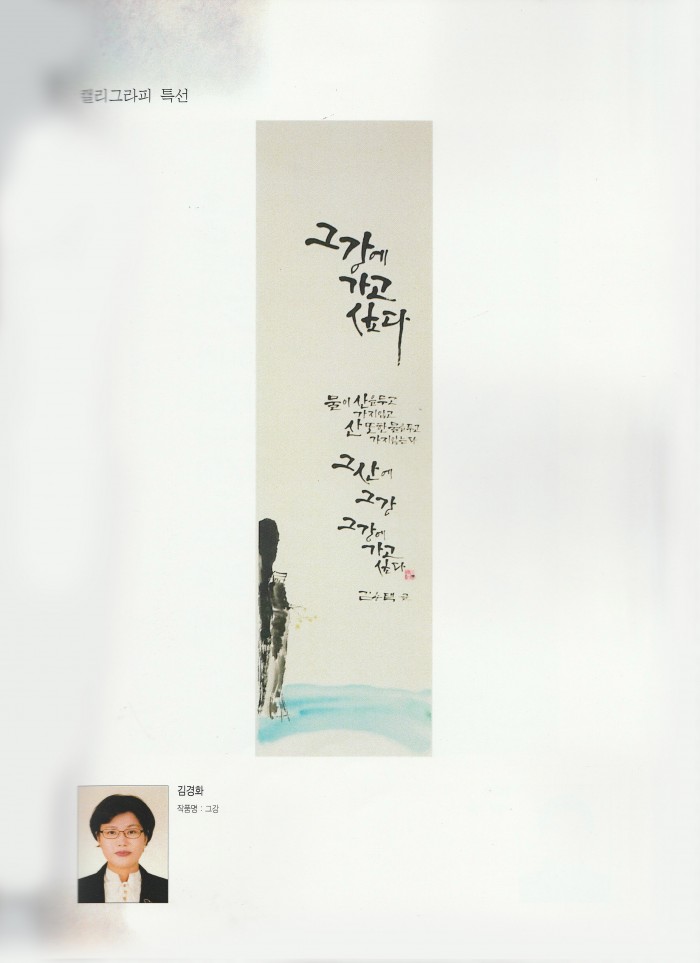 캘리그라피 특선
그강에
가고
싶다
물이 산을두고
가지않고
산 또한 물을두고
가지않는다
그산에
그강
그강에
가고
싶다
김용택 글
김경화
작품명 : 그강